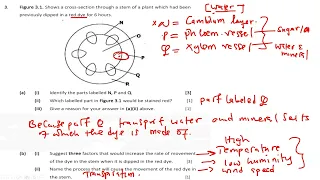 3. Figure 3.1. Shows a cross-section through a stem of a plant which had been
previously dipped in a red dye for 6 hours.
[Water]
N
P
Q
= Cambium layer.
P = phloem vessel
Q = Xylem vessel
Sugar/a
Water &
minerals
(a) (i) Identify the parts labelled N, P and Q. [3]
(ii) Which labelled part in Figure 3.1 would be stained red? [1]
(iii) Give a reason for your answer in (a)(ii) above. [1]
part labeled Q
Because part Q transport water and mineral salts
of which the dye is made of.
(b) (i) Suggest three factors that would increase the rate of movement
of the dye in the stem when it is dipped in the red dye. [3]
(ii) Name the process that will cause the movement of the red dye in
the stem. [1]
High
Temperature
low humidity
wind speed
Transpiration.